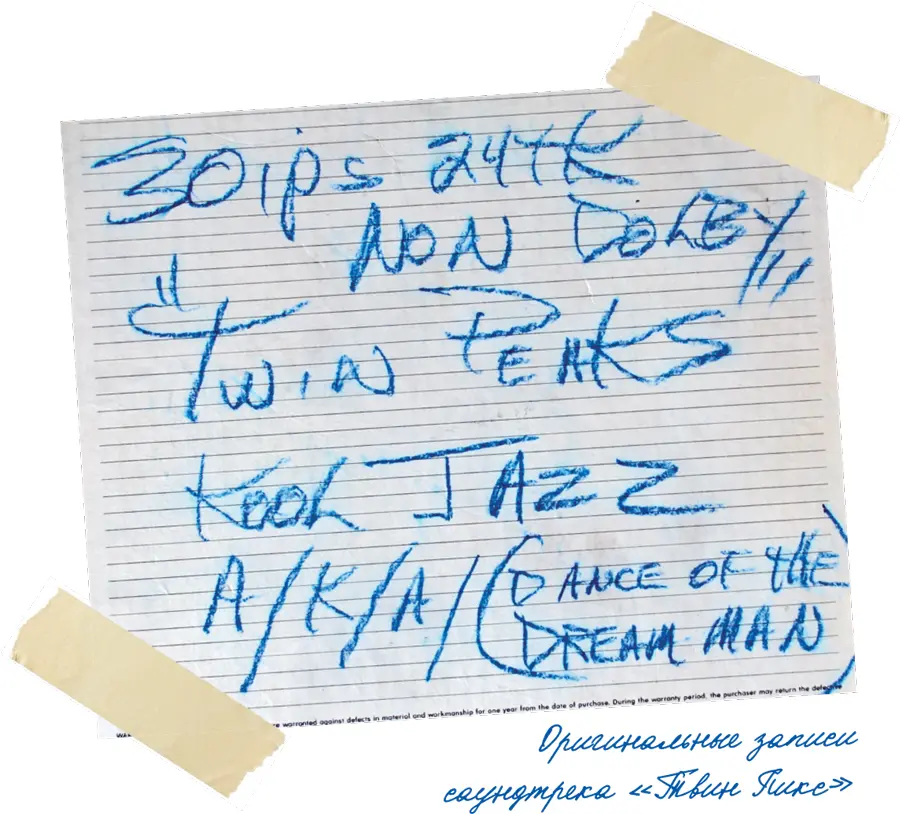 30ips 24TK
NON DOLBY
"TWIN PEAKS
KOOL JAZZ
A/K/A/(DANCE OF THE
DREAM MAN)
are warranted against defects in material and workmanship for one year from the date of purchase. During the warranty period, the purchaser may return the defective
Оригинальные записи
саундтрека «Твин Пикс»